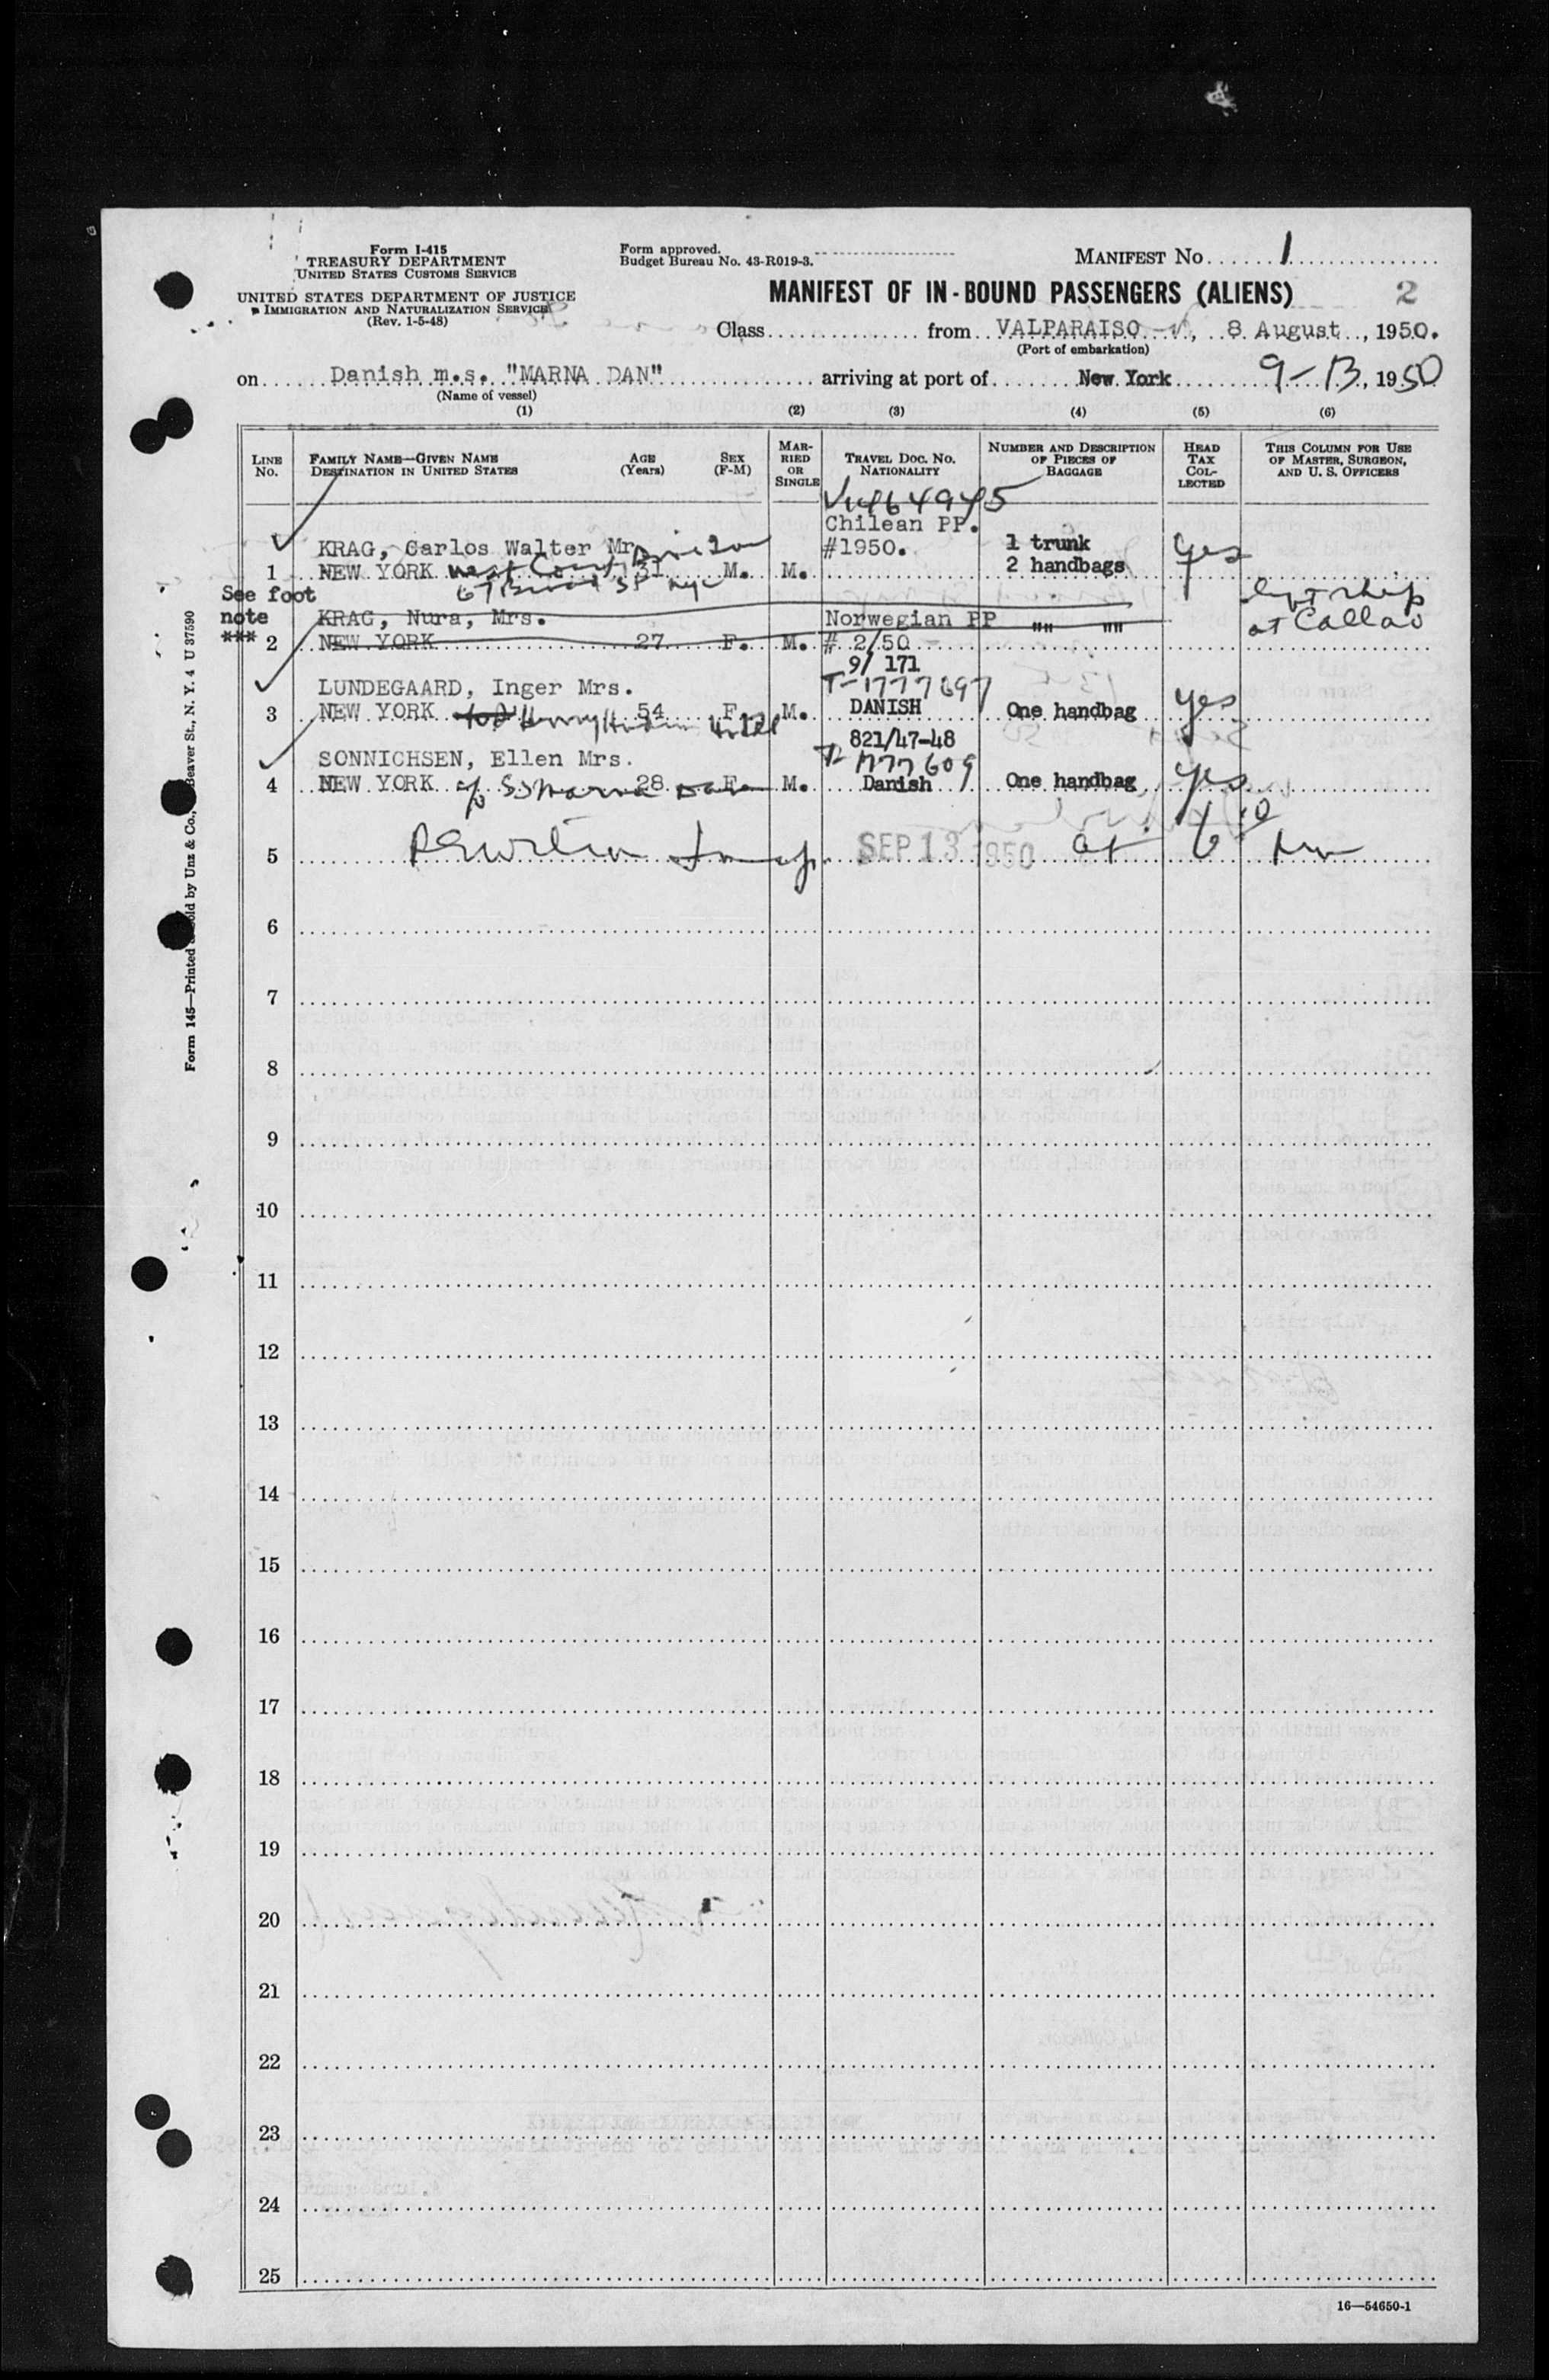 Form I-415
TREASURY DEPARTMENT
UNITED STATES CUSTOMS SERVICE
UNITED STATES DEPARTMENT OF JUSTICE
IMMIGRATION AND NATURALIZATION SERVICE
(Rev. 1-5-48)
Form approved.
Budget Bureau No. 43-R019-3.
MANIFEST NO. 1
MANIFEST OF IN-BOUND PASSENGERS (ALIENS) 2
Class from VALPARAISO, 8 August, 1950.
(Port of embarkation)
on Danish m.s. "MARNA DAN" arriving at port of New York 9-13, 1950
(Name of vessel)
(1) (2) (3) (4) (5) (6)
LINE NO.
FAMILY NAME—GIVEN NAME
DESTINATION IN UNITED STATES
AGE (Years)
SEX (F-M)
MARRIED OR SINGLE
TRAVEL DOC. NO.
NATIONALITY
NUMBER AND DESCRIPTION OF PIECES OF BAGGAGE
HEAD TAX COLLECTED
THIS COLUMN FOR USE OF MASTER, SURGEON, AND U. S. OFFICERS
Chilean PP.
KRAG, Carlos Walter Mr. #1950. 1 trunk yes
1 NEW YORK West Coast 31 M. M. 2 handbags
67 Broad St NYC
See foot note ***
KRAG, Nura, Mrs. Norwegian PP "" "" left ship
2 NEW YORK 27 F. M. # 2/50 at Callao
9/ 171
T-1777697
LUNDEGAARD, Inger Mrs.
3 NEW YORK Henry Hudson Hotel 54 F. M. DANISH One handbag yes
821/47-48
1777609
SONNICHSEN, Ellen Mrs.
4 NEW YORK c/o SS Marna Dan 28 F. M. Danish One handbag yes
5 SEP 13 1950 at 6 10 pm
6
7
8
9
10
11
12
13
14
15
16
17
18
19
20
21
22
23
24
25
Form 145—Printed sold by Unz & Co., Beaver St., N. Y. 4 U 37590
16—54650-1